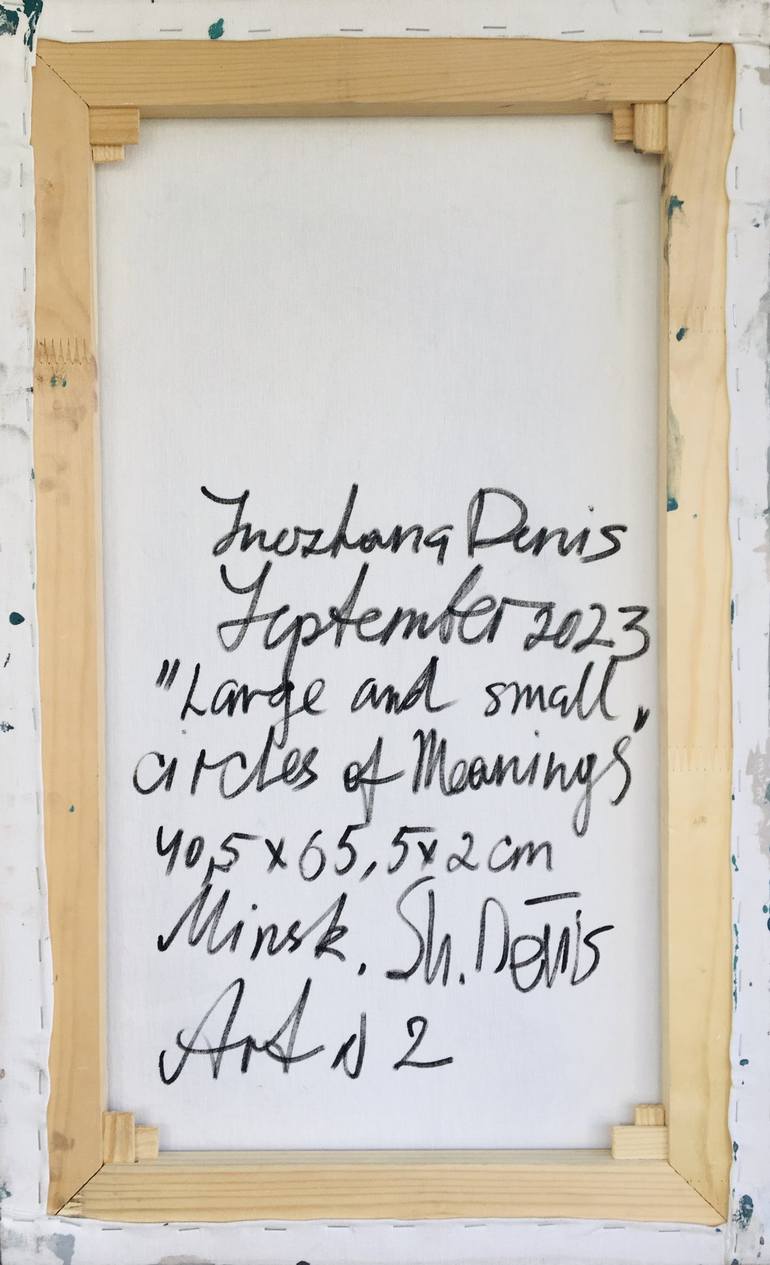 Denis
September 2023
"Large and small„
circles of Meanings"
40,5 x 65,5 x 2 cm
Minsk. Sh. Denis
Art N 2